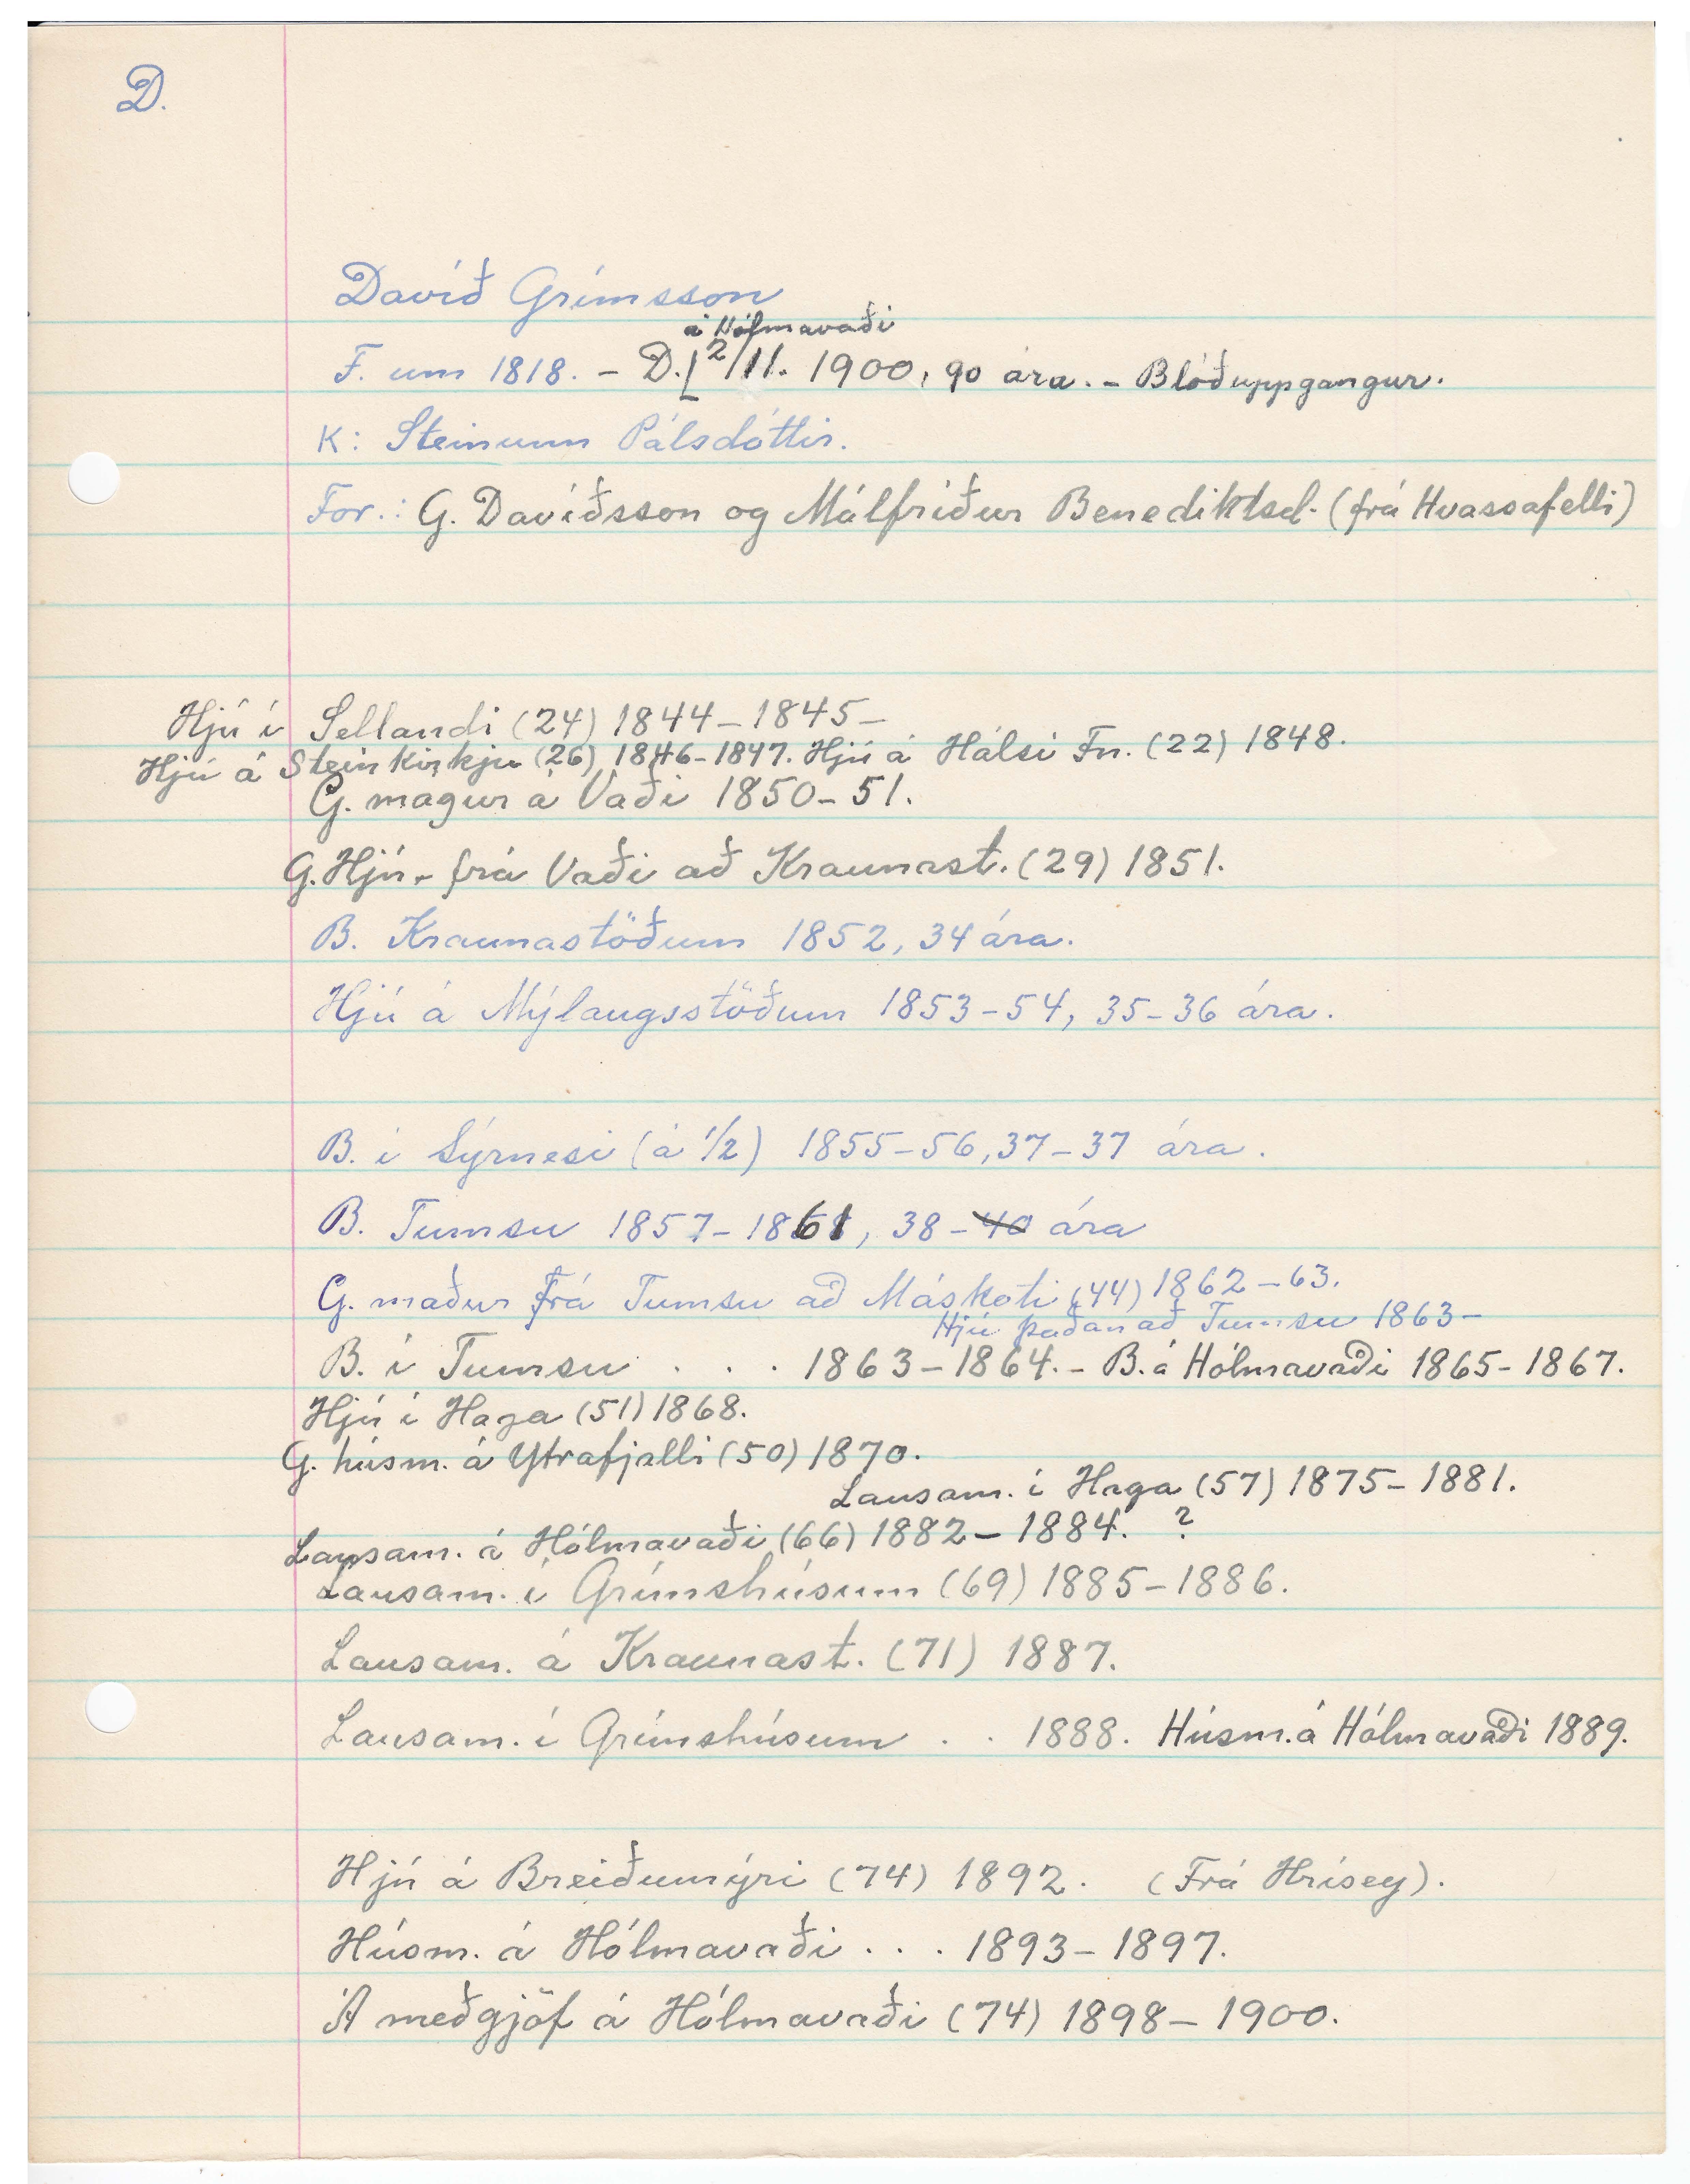 D.
Davíð Grímsson
á Hólmavaði
F. um 1818. – D. 2/11. 1900, 90 ára. – Blóðuppgangur.
K: Steinunn Pálsdóttir.
For.: G. Davíðsson og Málfríður Benediktsd. (frá Hvassafelli)
Hjú í Sellandi (24) 1844 – 1845 –
Hjú á Steinkirkju (26) 1846 – 1847. Hjú á Hálsi Fn. (22) 1848.
G. magur á Vaði 1850 – 51.
G. Hjú – frá Vaði að Kraunast. (29) 1851.
B. Kraunastöðum 1852, 34 ára.
Hjú á Mýlaugsstöðum 1853 – 54, 35 – 36 ára.
B. í Sýrnesi (á 1/2) 1855 – 56, 37 – 37 ára.
B. Tumsu 1857 – 1861, 38 – 40 ára
G. maður frá Tumsu að Máskoti (44) 1862 – 63.
Hjú þaðan að Tumsu 1863 –
B. í Tumsu . . . 1863 – 1864. – B. á Hólmavaði 1865 – 1867.
Hjú í Haga (51) 1868.
G. húsm. á Ytrafjalli (50) 1870.
Lausam. í Haga (57) 1875 – 1881.
Lausam. á Hólmavaði (66) 1882 – 1884. ?
Lausam. í Grímshúsum (69) 1885 – 1886.
Lausam. á Kraunast. (71) 1887.
Lausam. í Grímshúsum . . 1888. Húsm. á Hólmavaði 1889.
Hjú á Breiðumýri (74) 1892. (Frá Hrísey).
Húsm. á Hólmavaði . . . 1893 – 1897.
Á meðgjöf á Hólmavaði (74) 1898 – 1900.